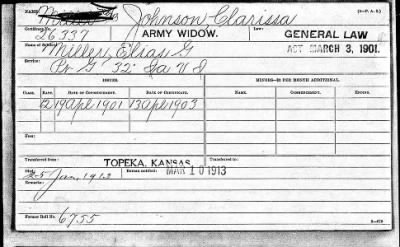 NAME Johnson Clarissa (3—P. A. R.)
Certificate No. 26337 ARMY WIDOW. GENERAL LAW
Name of Soldier: Miller, Elias G ACT MARCH 3, 1901.
Service: Pv G 32 Ia V I
ISSUES. MINORS—$2 PER MONTH ADDITIONAL.
CLASS. RATE. DATE OF COMMENCEMENT. DATE OF CERTIFICATE. NAME. COMMENCEMENT. ENDING.
12 19 Apl 1901 13 Apl 1903
Fees:
Transferred from TOPEKA, KANSAS. Transferred to
Died: 25 Jan. 1913 Bureau notified: MAR 10 1913
Remarks:
Former Roll No. 6755